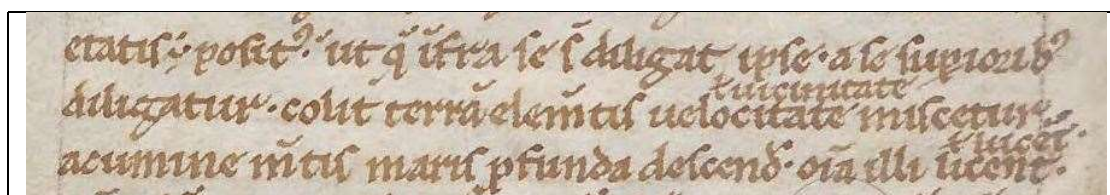 etatis· posit᷒· ut q̄ īfra se s̄ diligat ipse· a se supiorib᷒
ł uicinitate
diligatur· colit terrā elem̄tis uelocitate miscetur·
ł lucēt·
acumine m̄tis maris pfunda descend̄· oīa illi licent·